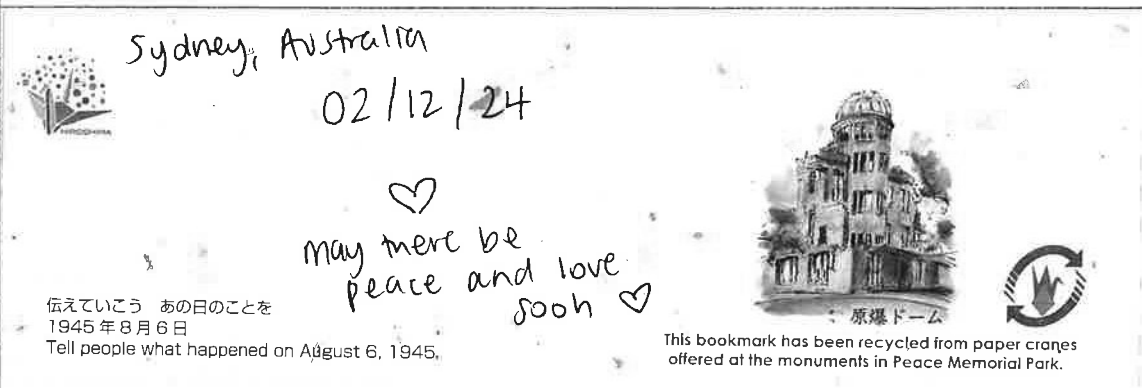 Sydney, Australia
02/12/24
HIROSHIMA
♡
may there be
peace and love
soon ♡
伝えていこう あの日のことを
1945年8月6日
Tell people what happened on August 6, 1945.
原爆ドーム
This bookmark has been recycled from paper cranes
offered at the monuments in Peace Memorial Park.